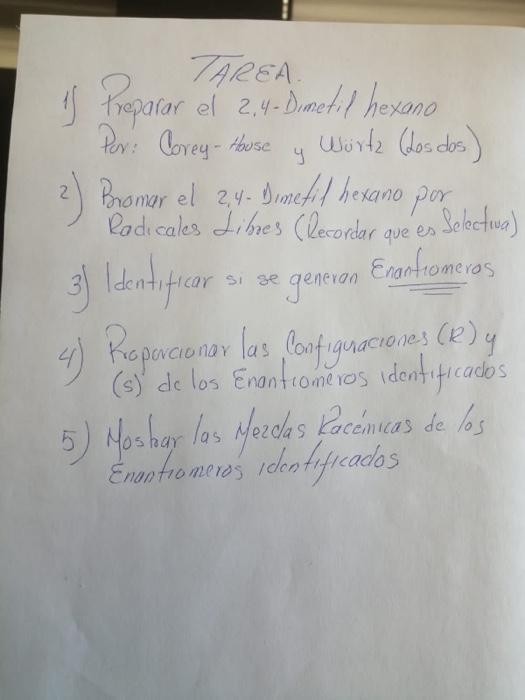 TAREA.
1) Preparar el 2,4-Dimetil hexano
Por: Corey-House y Würtz (Los dos)
2) Bromar el 2,4-Dimetil hexano por
Radicales Libres (Recordar que es Selectiva)
3) Identificar si se generan Enantiomeros
4) Proporcionar las Configuraciones (R) y
(s) de los Enantiomeros identificados
5) Mostrar las Mezclas Racémicas de los
Enantiomeros identificados